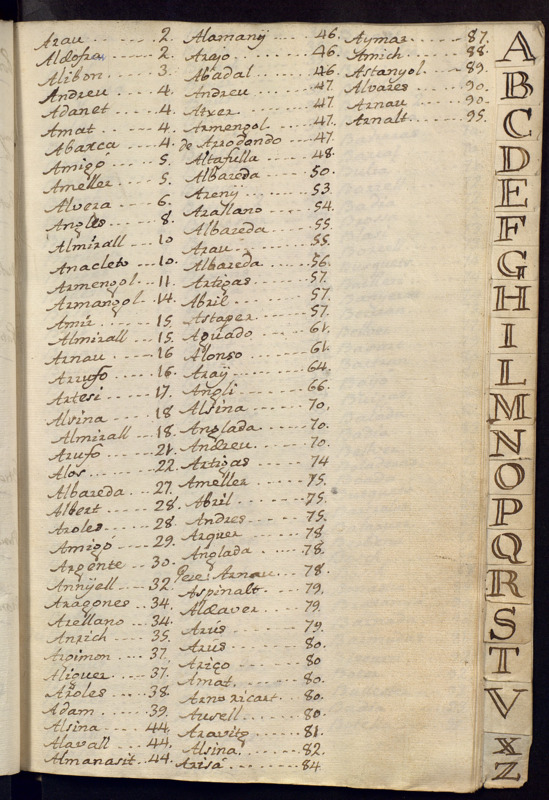 Arau 2.
Aldofra 2.
Alibon 3.
Andreu 4.
Adanet 4.
Amat 4.
Abarca 4.
Amigó 5.
Ameller 5.
Alvera 6.
Angles 8.
Almirall 10
Anacleto 10.
Armengol 11.
Armangol 14.
Amir 15.
Almirall 15.
Arnau 16
Arrufo 16.
Artesi 17.
Alvina 18
Almirall 18.
Arufo 21.
Alos 22.
Albareda 27.
Albert 28.
Aroles 28.
Amigó 29.
Argente 30.
Annyell 32.
Aragones 34.
Arellano 34.
Anrich 35.
Aroimon 37.
Aliguer 37.
Aroles 38.
Adam 39.
Alsina 44.
Alavall 44.
Almanasit 44.
Alamany 46.
Arajo 46.
Abadal 46.
Andreu 47.
Atxer 47.
Armengol 47.
de Arrodondo 47.
Altafulla 48.
Albareda 50.
Areny 53.
Arallano 54.
Albareda 55.
Arau 55.
Albareda 56.
Artegas 57.
Abril 57.
Astaper 57.
Aguado 61.
Alonso 61.
Aray 64.
Angli 66.
Alsina 70.
Anglada 70.
Andreu 70.
Artigas 74
Ameller 75.
Abril 75.
Andres 75.
Arquer 78
Anglada 78.
Pere Arnau 78.
Aspinalt 79.
Aldeaver 79.
Arús 79
Arús 80.
Ariço 80
Amat 80.
Arno ricart 80.
Ausell 80.
Aravitg 81.
Alsina 82.
Arisá 84
Aymar 87.
Amich 88.
Astanyol 89.
Alvares 90.
Arnau 90.
Arnalt 95.
A
B
C
D
E
F
G
H
I
L
M
N
O
P
Q
R
S
T
V
X
Z